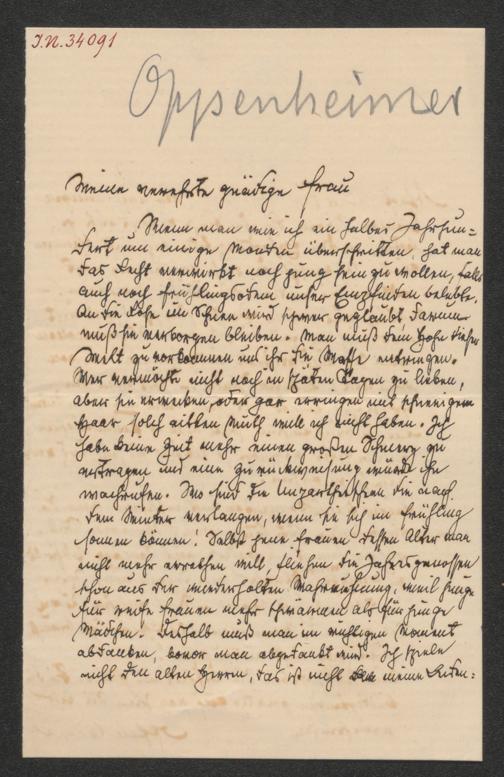 I.N. 34091
Oppenheimer
Meine verehrte gnädige Frau
Wenn man wie ich ein halbes Jahrhun=
dert um einige Monden überschritten, hat man
das Recht verwirkt noch jung sein zu wollen, falls
auch noch Frühlingsodem unser Empfinden belebte.
An die Rose im Schnee wird schwer geglaubt darum
muß sie verborgen bleiben. Man muß dem Hohn dieser
Welt zuvorkommen und ihr die Waffe entringen.
Wer vermöchte nicht noch in späten Tagen zu lieben,
aber sie erwecken, oder gar erringen mit schneeigem
Haar solch eitlen Muth will ich nicht haben. Ich
habe keine Zeit mehr einen großen Schmerz zu
ertragen und eine Zurückweisung würde ihn
wachrufen. Wo sind die die nach
dem Winter verlangen, wenn sie sich im Frühling
sonnen können! Selbst jene Frauen dessen Alter man
nicht mehr errathen will, fliehen die Jahresgenossen
schon aus der wiederholten Wahrnehmung, weil junge
für reife Frauen mehr schwärmen als für junge
Mädchen. Deshalb muß man im richtigen Moment
abdanken, bevor man abgedankt wird. Ich spiele
nicht den alten Herrn, das ist nicht meine Leiden=